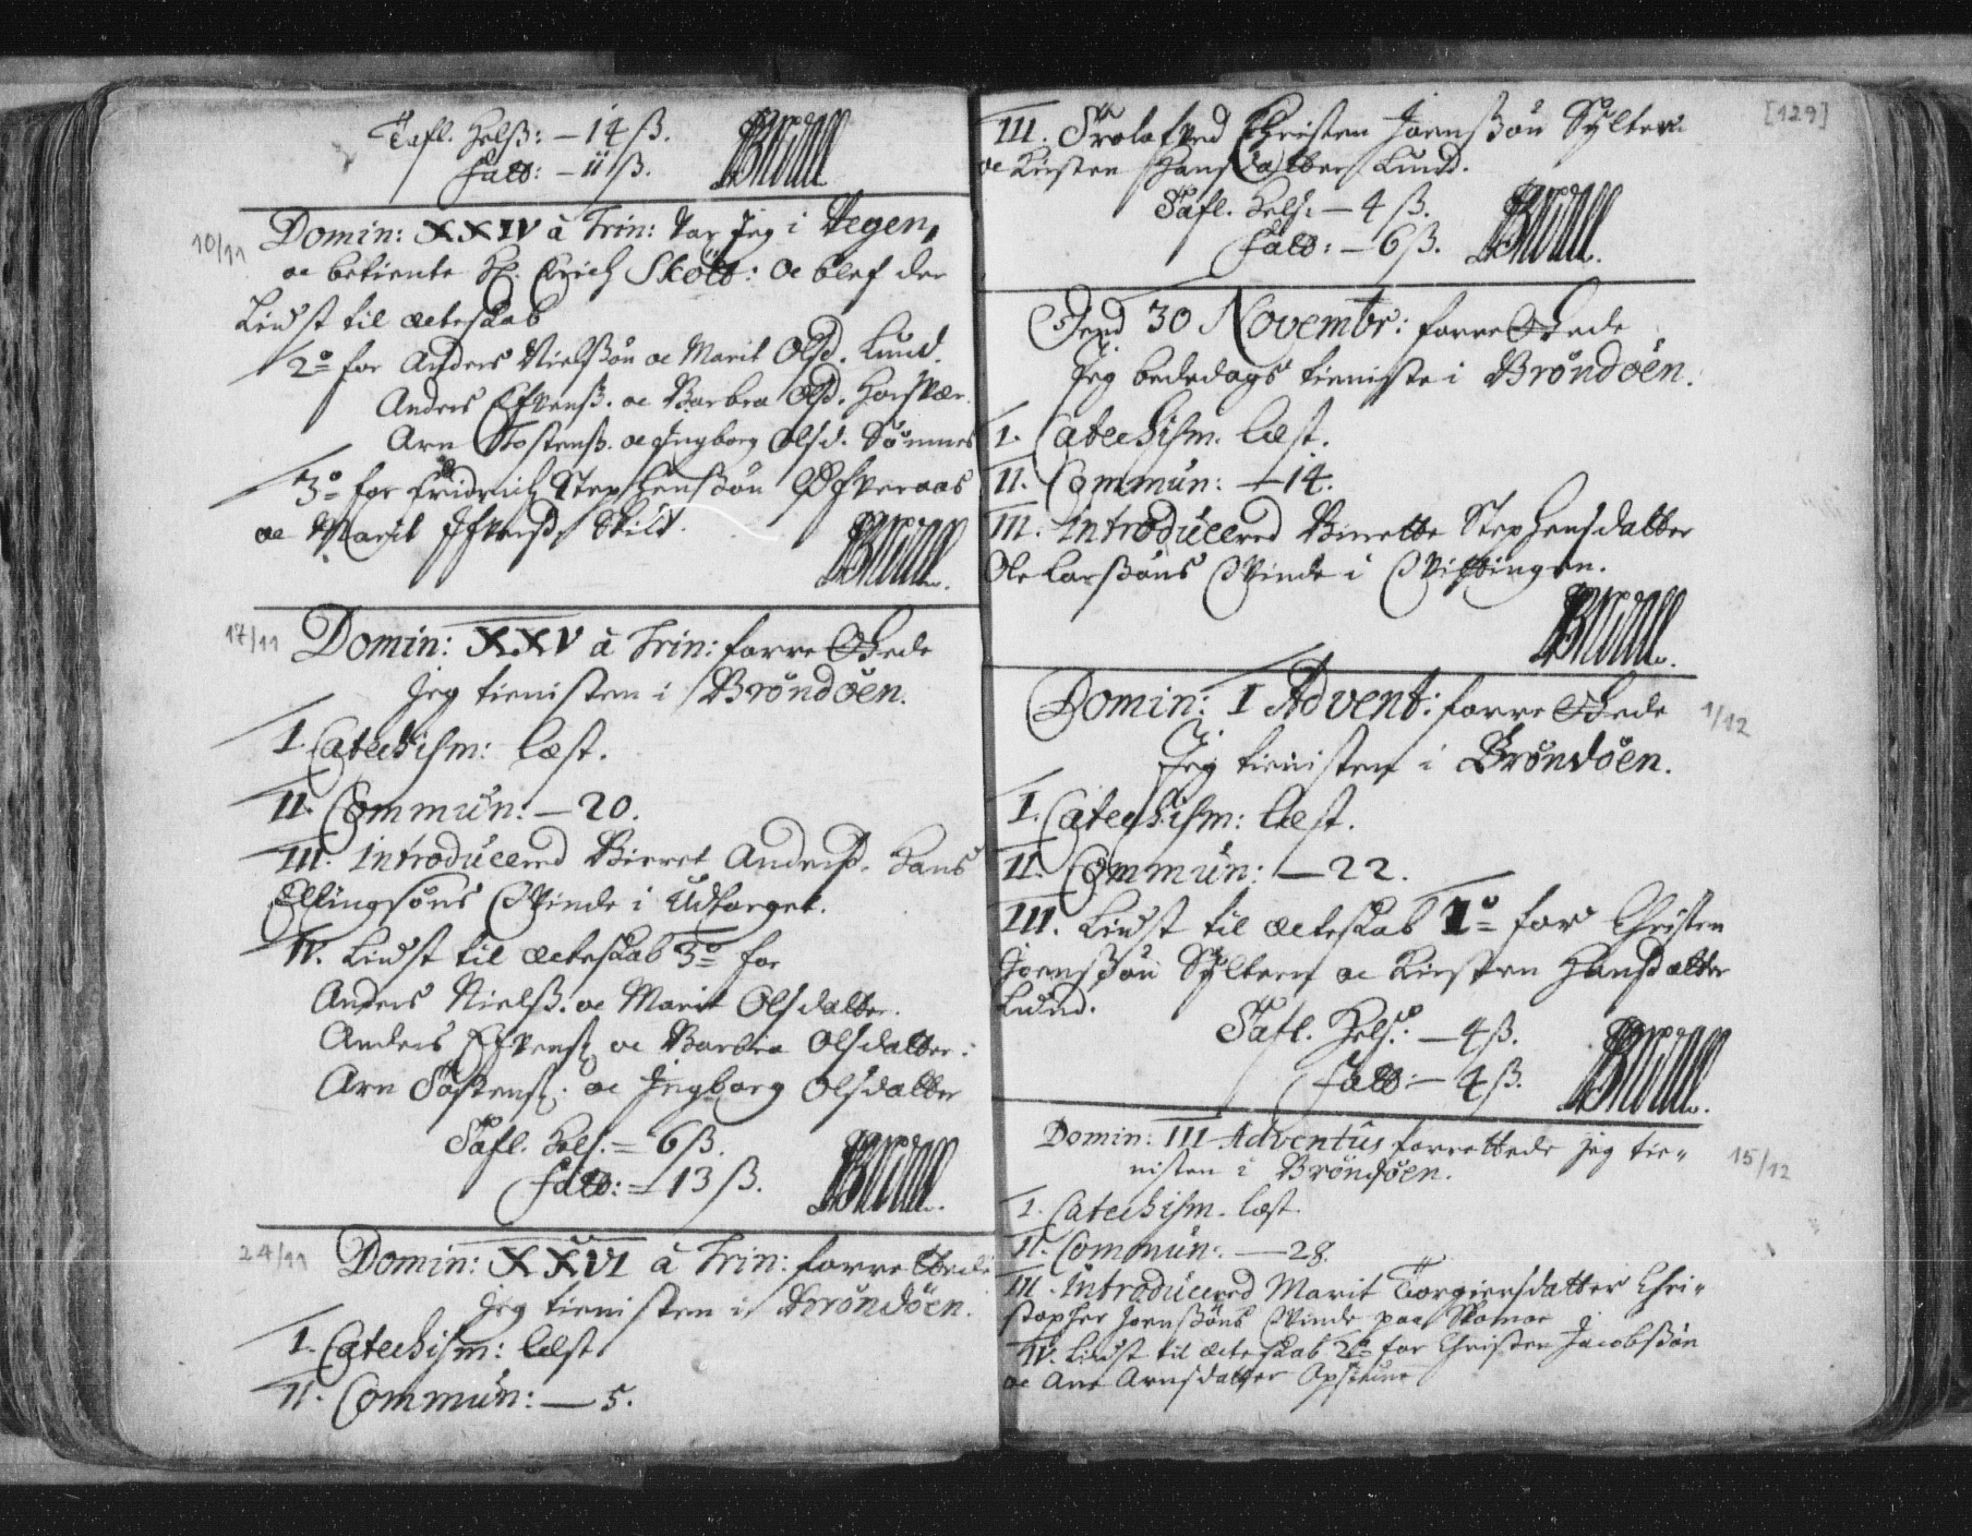 Tafl. Hels: – 14 ß.
Fatt: – 11 ß.
10/11
Domin: XXIV à Trin: Var Jeg i Vegen,
oc betiente Hr. Erich Skölt: Oc blef der
Liust til ecteskab
2º for Anders Nielssøn oc Marit Olsd. Lund.
Anders Efvenß. oc Barbra Olsd. Horsvær.
Arn Tostenß. oc Ingborg Olsd. Sømnes
3º for Fridrich Stephenssøn
oc Marit Skild.
17/11
Domin: XXV à Trin: forrettede
Jeg tienisten i Brøndöen.
I. Catechism: læst.
II. Commun: – 20.
III. Introducered Birret Andersd. Hans
Ellingsøns Qvinde i Udtorget.
IV. Liust til ecteskab 3º for
Anders Nielß. oc Marit Olsdatter.
Anders Efvenß. oc Barbra Olsdatter.
Arn Tostenß. oc Ingborg Olsdatter
Tafl. Hels. = 6 ß.
Fatt: = 13 ß.
24/11
Domin: XXVI à Trin: forrettede
Jeg tienisten i Brøndöen.
I. Catechism: læst.
II. Commun: – 5.
[129]
III. Trolofved Christen Joenssøn Sylter
oc Kirsten Hansdatter Lund.
Tafl. Hels: – 4 ß.
Fatt: – 6 ß.
30 Novembr: forrettede
Jeg bededags tieniste i Brøndöen.
I. Catechism. læst.
II. Commun: – 14.
III. Introducered Birrette Stephensdatter
Ole Larssøns Qvinde i
Domin: I Advent: forrettede
Jeg tienisten i Brøndöen.
1/12
I. Catechism: læst.
II. Commun: – 22.
III. Liust til ecteskab 1º for Christen
Joenssøn Sylter oc Kirsten Hansdatter
Lund.
Tafl. Hels: – 4 ß.
Fatt: – 4 ß.
Domin: III Adventus forrettede jeg tie-
nisten i Brøndöen.
15/12
I. Catechism. læst.
II. Commun: – 28.
III. Introducered Marit Torgiersdatter Chri-
stopher Joenssøns Qvinde paa
IV. Liust til ecteskab 2º for Christen Jacobssøn
oc Ane Arnsdatter